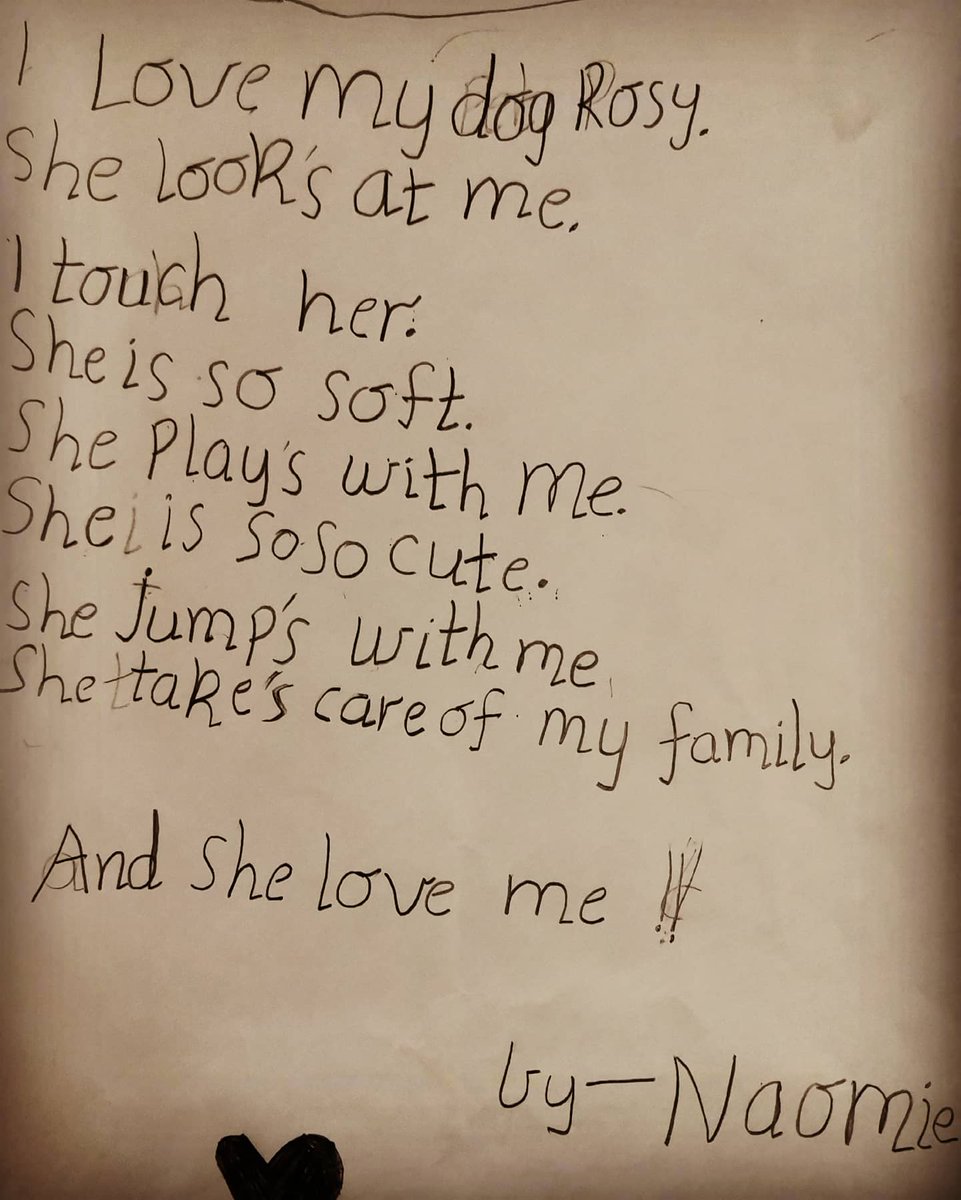 I Love my dog Rosy.
She look's at me.
I touch her.
She is so soft.
She Play's with me.
She is so so cute.
She Jump's with me
She take's care of my family.
And She love me !!
by - Naomie